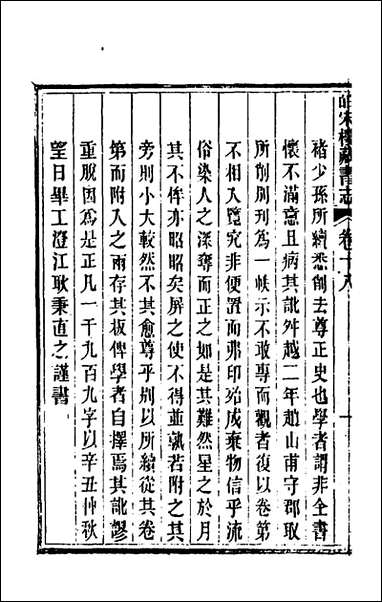 皕宋樓藏書志 卷十八 一
褚少孫所續悉削去尊正史也學者謂非全書
懷不滿意且病其訛舛越二年趙山甫守郡取
所削別刊爲一帙示不敢專而觀者復以卷第
不相入覽究非便置而弗印殆成棄物信乎流
俗染人之深奪而正之如是其難然星之於月
其不侔亦昭昭矣屏之使不得並孰若附之其
旁則小大較然不其愈尊乎則以所續從其卷
第而附入之兩存其板俾學者自擇焉其訛謬
重脫因爲是正凡一千九百九字以辛丑仲秋
望日畢工澄江耿秉直之謹書